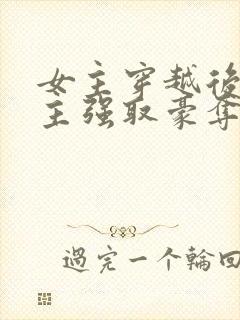 女主穿越後
主强取豪奪
過完一个輪回